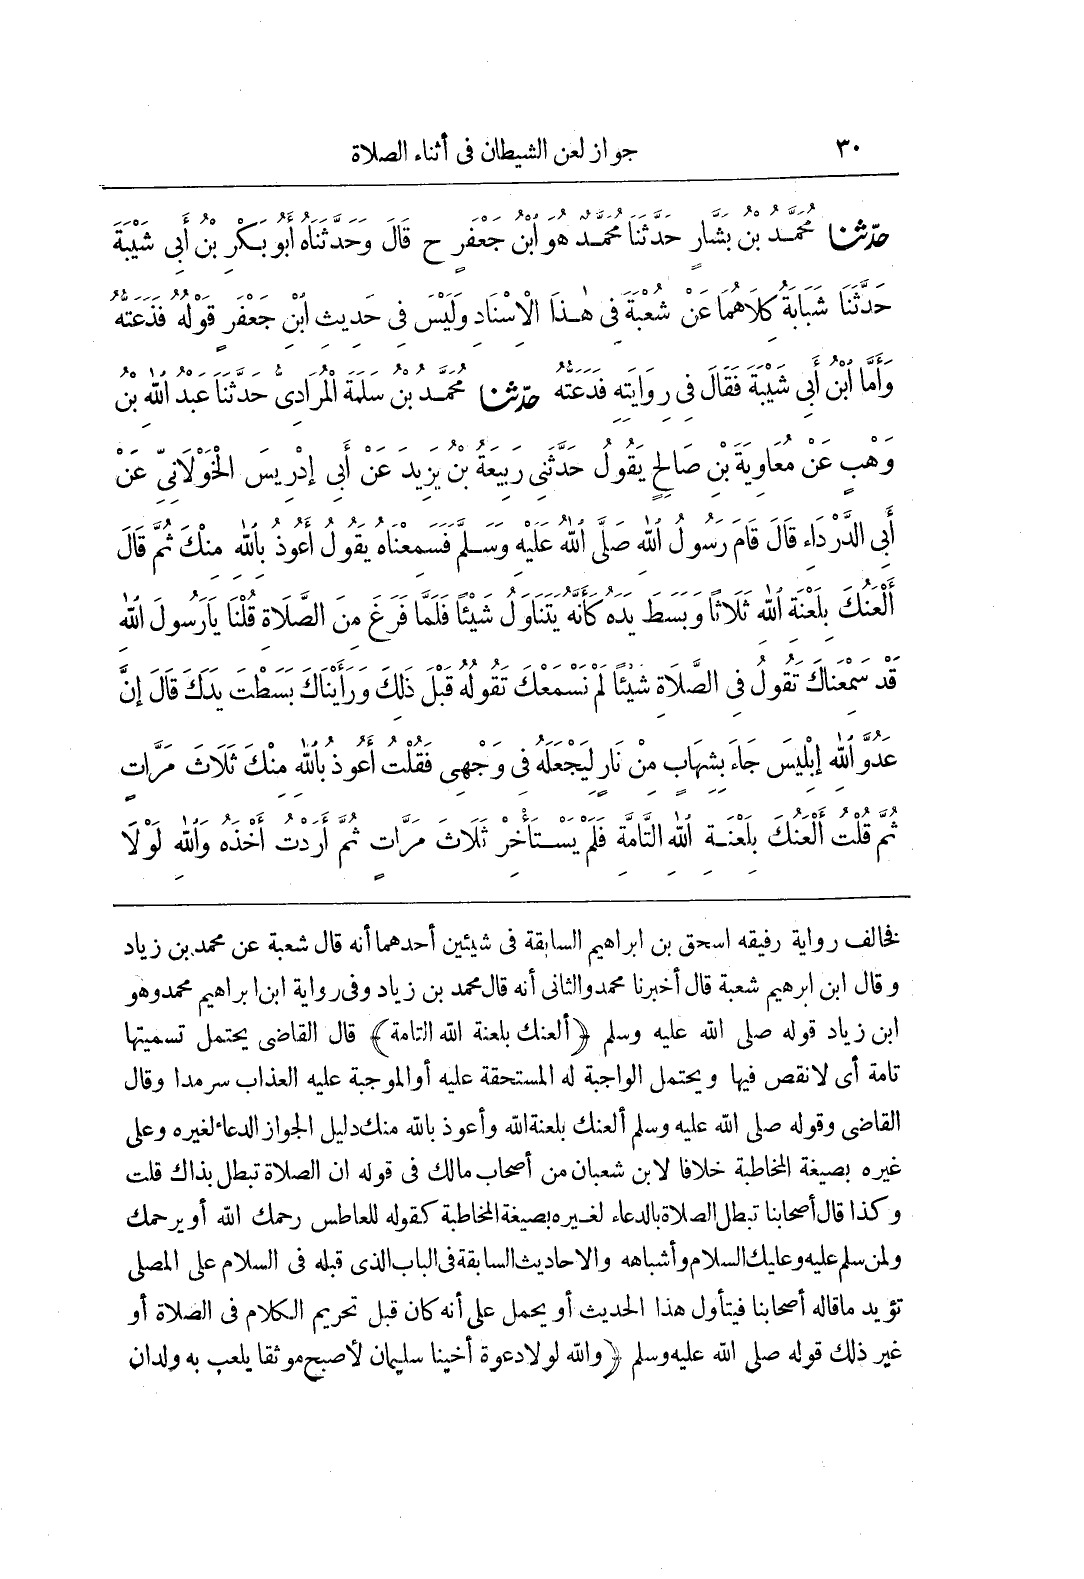 ٣٠ جواز لعن الشيطان فى أثناء الصلاة
حدّثنا مُحَمَّدُ بْنُ بَشَّارٍ حَدَّثَنَا مُحَمَّدٌ هُوَ ابْنُ جَعْفَرٍ ح قَالَ وَحَدَّثَنَاهُ أَبُو بَكْرِ بْنُ أَبِي شَيْبَةَ
حَدَّثَنَا شَبَابَةُ كِلَاهُمَا عَنْ شُعْبَةَ فِى هٰذَا الْإِسْنَادِ وَلَيْسَ فِى حَدِيثِ ابْنِ جَعْفَرٍ قَوْلُهُ فَذَعَتُّهُ
وَأَمَّا ابْنُ أَبِى شَيْبَةَ فَقَالَ فِى رِوَايَتِهِ فَدَعَتُّهُ حدّثنا مُحَمَّدُ بْنُ سَلَمَةَ الْمُرَادِىُّ حَدَّثَنَا عَبْدُ اللّٰهِ بْنُ
وَهْبٍ عَنْ مُعَاوِيَةَ بْنِ صَالِحٍ يَقُولُ حَدَّثَنِى رَبِيعَةُ بْنُ يَزِيدَ عَنْ أَبِى إِدْرِيسَ الْخَوْلَانِىِّ عَنْ
أَبِى الدَّرْدَاءِ قَالَ قَامَ رَسُولُ اللّٰهِ صَلَّى اللّٰهُ عَلَيْهِ وَسَلَّمَ فَسَمِعْنَاهُ يَقُولُ أَعُوذُ بِاللّٰهِ مِنْكَ ثُمَّ قَالَ
أَلْعَنُكَ بِلَعْنَةِ اللّٰهِ ثَلَاثًا وَبَسَطَ يَدَهُ كَأَنَّهُ يَتَنَاوَلُ شَيْئًا فَلَمَّا فَرَغَ مِنَ الصَّلَاةِ قُلْنَا يَارَسُولَ اللّٰهِ
قَدْ سَمِعْنَاكَ تَقُولُ فِى الصَّلَاةِ شَيْئًا لَمْ نَسْمَعْكَ تَقُولُهُ قَبْلَ ذَلِكَ وَرَأَيْنَاكَ بَسَطْتَ يَدَكَ قَالَ إِنَّ
عَدُوَّ اللّٰهِ إِبْلِيسَ جَاءَ بِشِهَابٍ مِنْ نَارٍ لِيَجْعَلَهُ فِى وَجْهِى فَقُلْتُ أَعُوذُ بِاللّٰهِ مِنْكَ ثَلَاثَ مَرَّاتٍ
ثُمَّ قُلْتُ أَلْعَنُكَ بِلَعْنَةِ اللّٰهِ التَّامَّةِ فَلَمْ يَسْتَأْخِرْ ثَلَاثَ مَرَّاتٍ ثُمَّ أَرَدْتُ أَخْذَهُ وَاللّٰهِ لَوْلَا
فخالف رواية رفيقه اسحق بن ابراهيم السابقة فى شيئين أحدهما أنه قال شعبة عن محمد بن زياد
وقال ابن ابرهيم شعبة قال أخبرنا محمد والثانى أنه قال محمد بن زياد وفى رواية ابن ابراهيم محمد وهو
ابن زياد قوله صلى الله عليه وسلم ﴿ألعنك بلعنة الله التامة﴾ قال القاضى يحتمل تسميتها
تامة أى لا نقص فيها ويحتمل الواجبة له المستحقة عليه أو الموجبة عليه العذاب سرمدا وقال
القاضى وقوله صلى الله عليه وسلم ألعنك بلعنة الله وأعوذ بالله منك دليل الجواز الدعاء لغيره وعلى
غيره بصيغة المخاطبة خلافا لابن شعبان من أصحاب مالك فى قوله ان الصلاة تبطل بذاك قلت
وكذا قال أصحابنا تبطل الصلاة بالدعاء لغيره بصيغة المخاطبة كقوله للعاطس رحمك الله أو يرحمك
ولمن سلم عليه وعليك السلام وأشباهه والاحاديث السابقة فى الباب الذى قبله فى السلام على المصلى
تؤيد ماقاله أصحابنا فيتأول هذا الحديث أو يحمل على أنه كان قبل تحريم الكلام فى الصلاة أو
غير ذلك قوله صلى الله عليه وسلم ﴿والله لولا دعوة أخينا سليمان لأصبح موثقا يلعب به ولدان